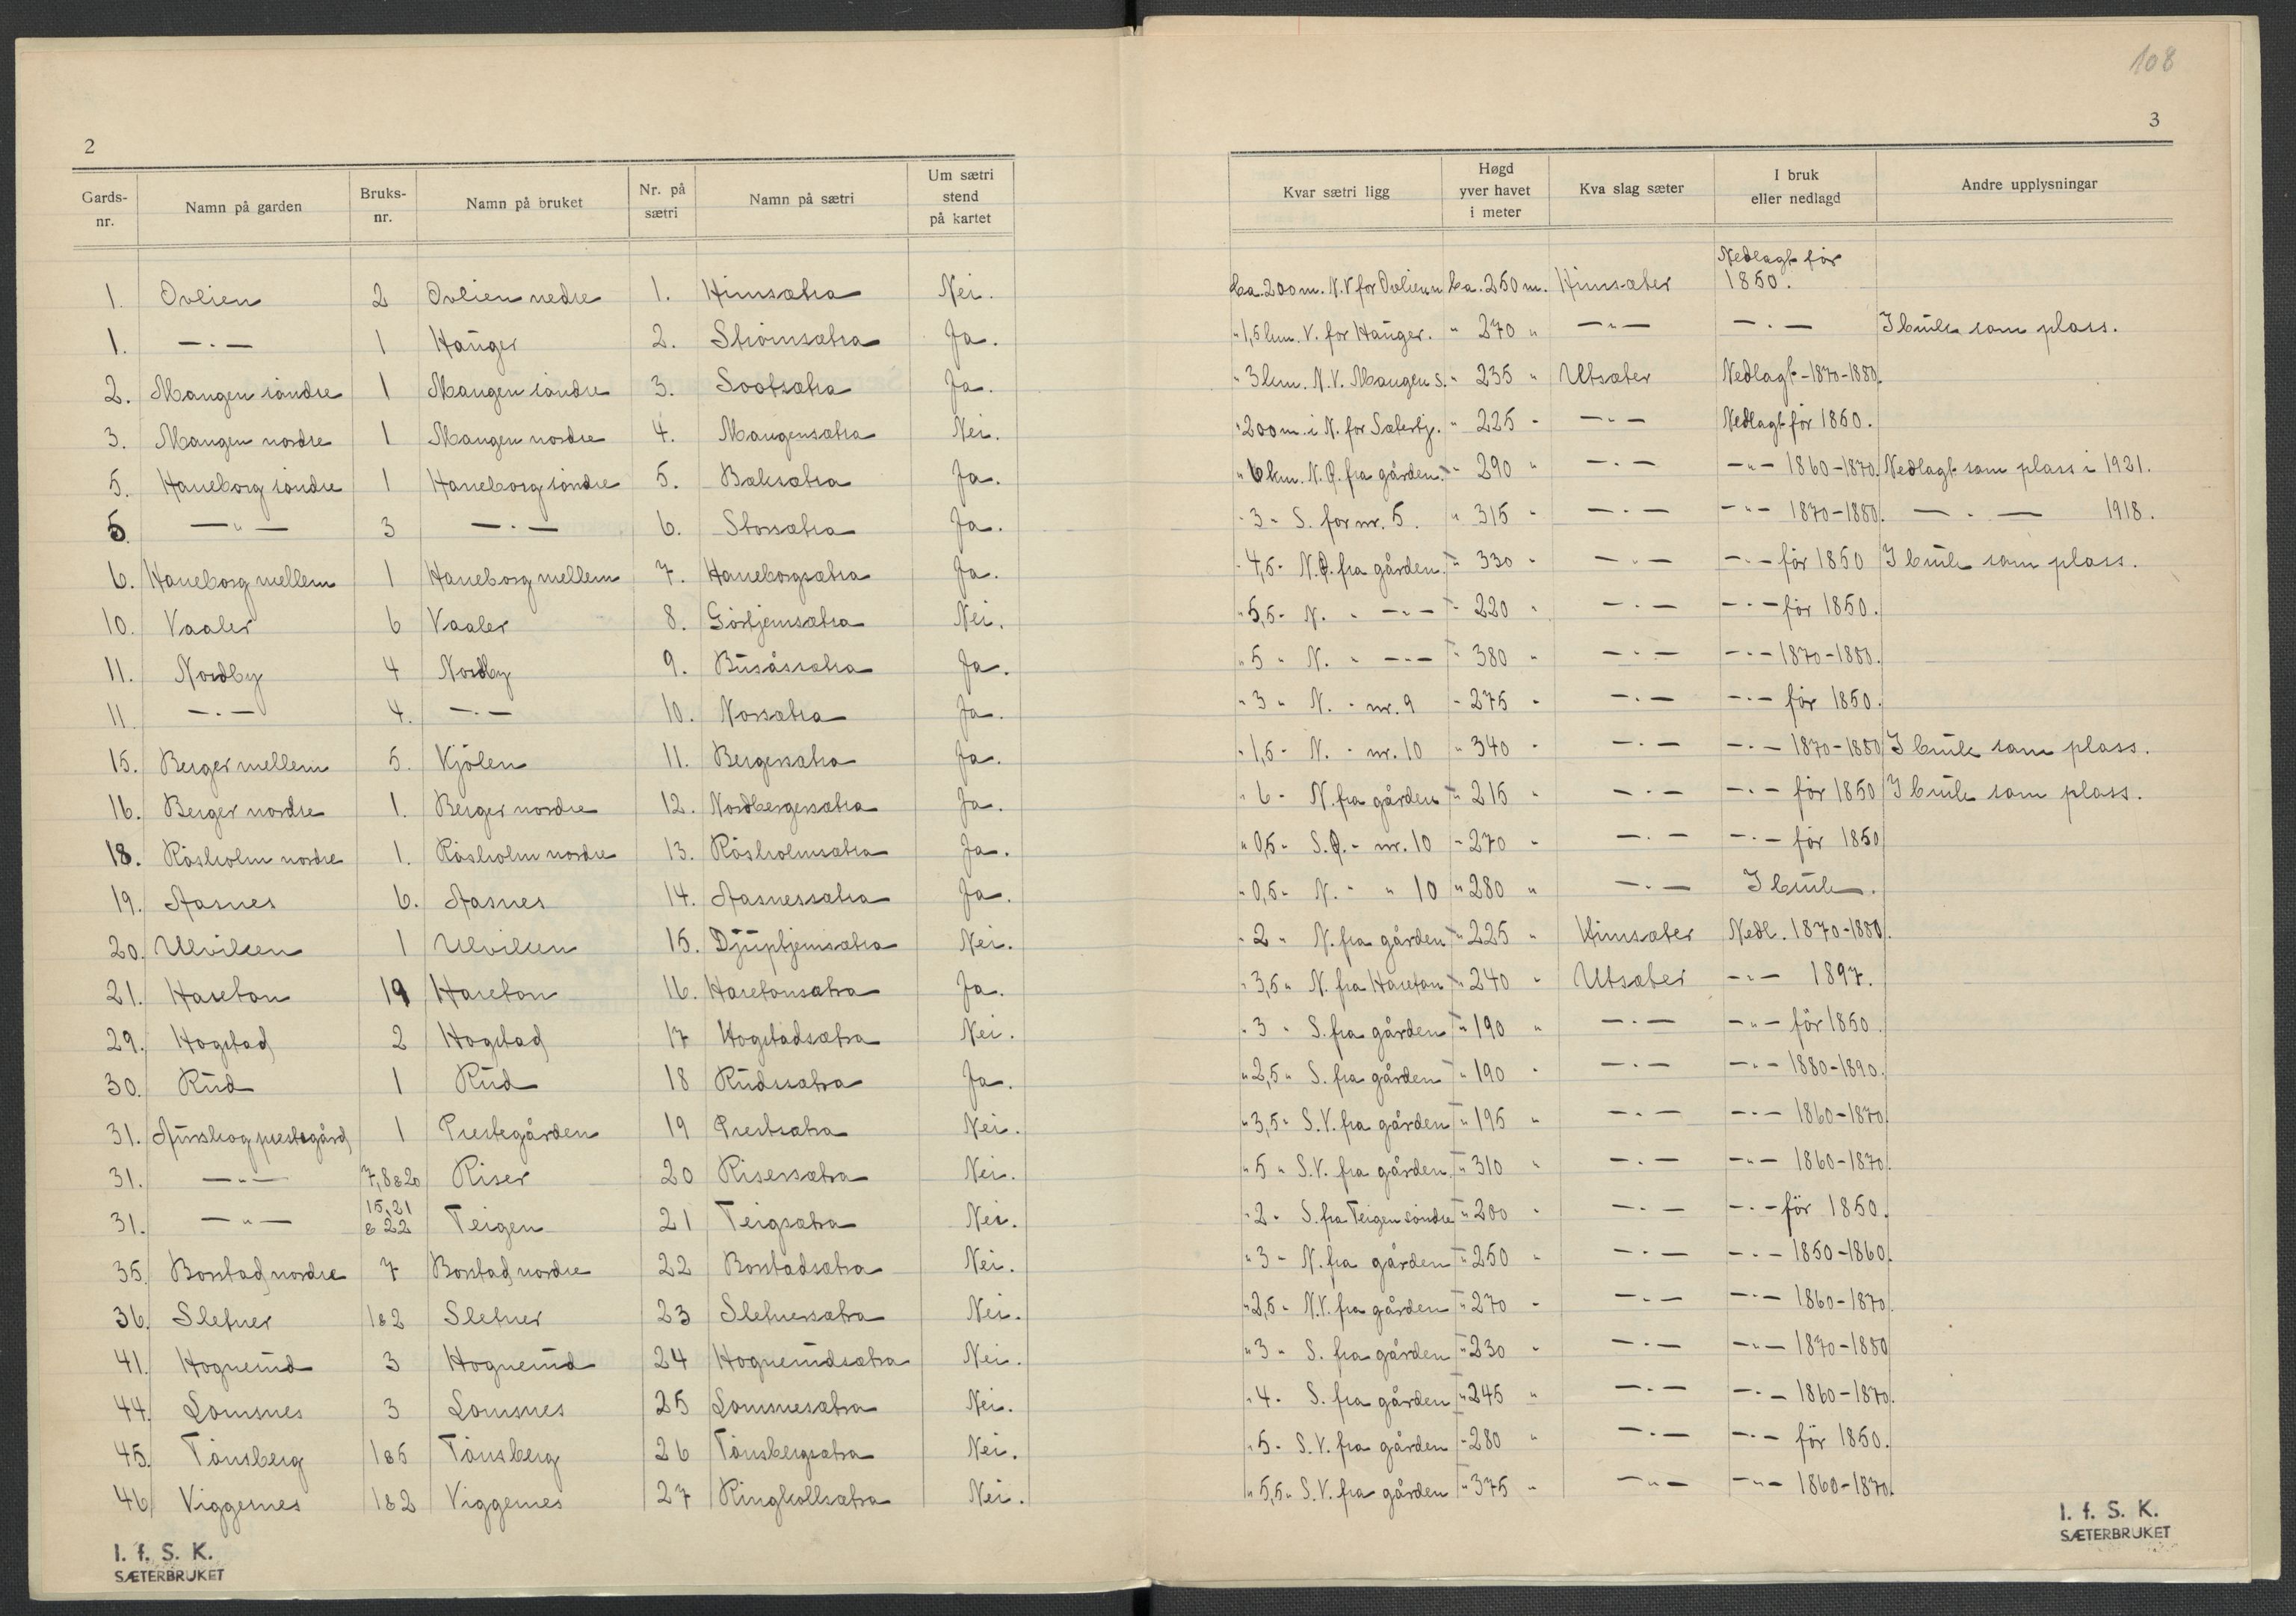 108
2
3
Gards-nr. | Namn på garden | Bruks-nr. | Namn på bruket | Nr. på sætri | Namn på sætri | Um sætri stend på kartet | Kvar sætri ligg | Høgd yver havet i meter | Kva slag sæter | I bruk eller nedlagd | Andre upplysningar
1. | Ovlien | 2 | Ovlien nedre | 1. | Himsætra | Nei. | ca. 200 m. N.V for Ovlien n | ca. 250 m. | Himsæter | Nedlagt før 1850.
1. | —„— | 1 | Hauger | 2. | Strømsætra | Ja. | „ 1,5 km. V. for Hauger. | „ 270 „ | —„— | —„— | I bruk som plass.
2. | Mangen søndre | 1 | Mangen søndre | 3. | Sootsætra | Ja. | „ 3 km. N.V. Mangen s. | „ 235 „ | Utsæter | Nedlagt -1870-1880.
3. | Mangen nordre | 1 | Mangen nordre | 4. | Mangensætra | Nei. | „ 200 m. i N. for Sætertj. | „ 225 „ | —„— | Nedlagt før 1850.
5. | Haneborg søndre | 1 | Haneborg søndre | 5. | Baksætra | Ja. | „ 6 km. N.Ø. fra gården. | „ 290 „ | —„— | —„— 1860-1870. | Nedlagt som plass i 1921.
5. | —„— | 3 | —„— | 6. | Storsætra | Ja. | „ 3 „ S. for nr. 5. | „ 315 „ | —„— | —„— 1870-1880. | —„— 1918.
6. | Haneborg mellem | 1 | Haneborg mellem | 7. | Haneborgsætra | Ja. | „ 4,5 „ N.Ø. fra gården. | „ 330 „ | —„— | —„— før 1850 | I bruk som plass.
10. | Vaaler | 6 | Vaaler | 8. | Gørtjernsætra | Nei. | „ 5,5 „ N. „ —„— | „ 220 „ | —„— | —„— før 1850.
11. | Nordby | 4 | Nordby | 9. | Busåssætra | Ja. | „ 5 „ N. „ —„— | „ 380 „ | —„— | —„— 1870-1880.
11. | —„— | 4. | —„— | 10. | Norsætra | Ja. | „ 3 „ N. „ nr. 9 | „ 275 „ | —„— | —„— før 1850.
15. | Berger mellem | 5. | Kjølen | 11. | Bergersætra | Ja. | „ 1,5 „ N. „ nr. 10 | „ 340 „ | —„— | —„— 1870-1880 | I bruk som plass.
16. | Berger nordre | 1. | Berger nordre | 12. | Nordbergersætra | Ja. | „ 6 „ N. fra gården | „ 215 „ | —„— | —„— før 1850 | I bruk som plass.
18. | Røsholm nordre | 1. | Røsholm nordre | 13. | Røsholmsætra | Ja. | „ 0,5 „ S.Ø. „ nr. 10 | „ 270 „ | —„— | —„— før 1850
19. | Aasnes | 6. | Aasnes | 14. | Aasnessætra | Ja. | „ 0,5 „ N. „ „ 10 | „ 280 „ | —„— | I bruk.
20. | Ulviken | 1 | Ulviken | 15. | Djuptjernsætra | Nei. | „ 2 „ N. fra gården | „ 225 „ | Himsæter | Nedl. 1870-1880.
21. | Hareton | 19 | Hareton | 16. | Haretonsætra | Ja. | „ 3,5 „ N. fra Hareton | „ 240 „ | Utsæter | —„— 1897.
29. | Hogstad | 2 | Hogstad | 17 | Hogstadsætra | Nei. | „ 3 „ S. fra gården | „ 190 „ | —„— | —„— før 1850.
30. | Rud | 1 | Rud | 18 | Rudssætra | Ja. | „ 2,5 „ S. fra gården | „ 190 „ | —„— | —„— 1880-1890.
31. | Aurskog prestegård | 1 | Prestegården | 19 | Prestsætra | Nei. | „ 3,5 „ S.V. fra gården | „ 195 „ | —„— | —„— 1860-1870
31. | —„— | 7, 8 & 20 | Riser | 20 | Risersætra | Nei. | „ 5 „ S.V. fra gården | „ 310 „ | —„— | —„— 1860-1870.
31. | —„— | 15, 21 & 22 | Teigen | 21 | Teigsætra | Nei. | „ 2 „ S. fra Teigen søndre | „ 200 „ | —„— | —„— før 1850.
35. | Borstad nordre | 7 | Borstad nordre | 22 | Borstadsætra | Nei. | „ 3 „ N. fra gården | „ 250 „ | —„— | —„— 1850-1860.
36. | Sletner | 1 & 2 | Sletner | 23 | Sletnersætra | Nei. | „ 2,5 „ N.V. fra gården | „ 270 „ | —„— | —„— 1860-1870.
41. | Hognerud | 3 | Hognerud | 24 | Hognerudsætra | Nei. | „ 3 „ S. fra gården | „ 230 „ | —„— | —„— 1870-1880
44. | Lomsnes | 3 | Lomsnes | 25 | Lomsnesætra | Nei. | „ 4 „ S. fra gården | „ 245 „ | —„— | —„— 1860-1870.
45. | Tønsberg | 1 & 5 | Tønsberg | 26 | Tønsbergsætra | Nei. | „ 5 „ S.V. fra gården | „ 280 „ | —„— | —„— før 1850.
46. | Viggernes | 1 & 2 | Viggernes | 27 | Ringkollsætra | Nei. | „ 5,5 „ S.V. fra gården | „ 375 „ | —„— | —„— 1860-1870.
I. f. S. K.
SÆTERBRUKET
I. f. S. K.
SÆTERBRUKET